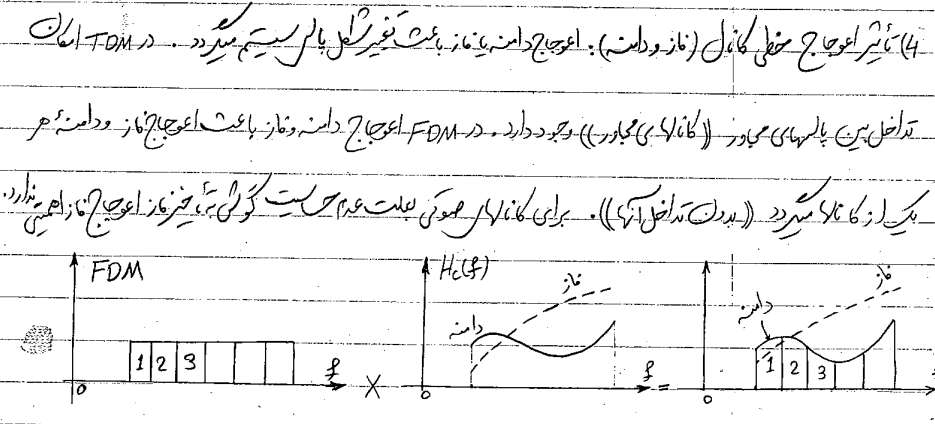 4) تأثیر اعوجاج خطی کانال (فاز و دامنه): اعوجاج دامنه یا فاز باعث تغییر شکل پالس سیستم میگردد. در TDM امکان
تداخل بین پالسهای مجاور ((کانالهای مجاور)) وجود دارد. در FDM اعوجاج دامنه و فاز باعث اعوجاج فاز و دامنهٔ هر
یک از کانالها میگردد ((بدون تداخل آنها)). برای کانالهای صوتی بعلت عدم حساسیت گوش به تأخیر فاز اعوجاج فاز اهمیتی ندارد.
FDM
1 2 3
f
0
X
Hc(f)
فاز
دامنه
f
0
=
فاز
دامنه
1 2 3
0